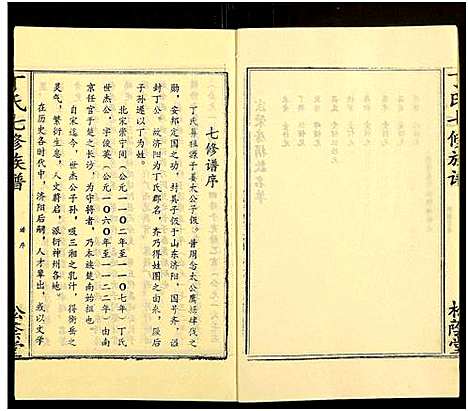 丁氏七修族谱
七修谱序
丁氏鼻祖源于姜太公子伋。昔周念太公鹰扬肆伐之
勋，安邦定国之功，封其子伋于山东济阳，国号齐，谥
封丁公。故济阳为丁氏郡名，齐乃得姓图之由来，厥后
子孙遂以丁为姓。
北宋崇宁间（公元一一〇二年至一一〇七年，丁氏
世杰公，字俊英（公元一〇六〇年至一一二二年）由南
京任官于楚之长沙，为守将者，乃本族楚南始祖也
自宋迄今，世杰公子孙，吸三湘之乳汁，得衡岳之
灵气，繁衍生息，人文蔚启，派衍神州各地。
在历史各时代中，济阳后嗣，人才辈出，或以文学
丁氏七修族谱
谱序
松荫堂
松荫堂